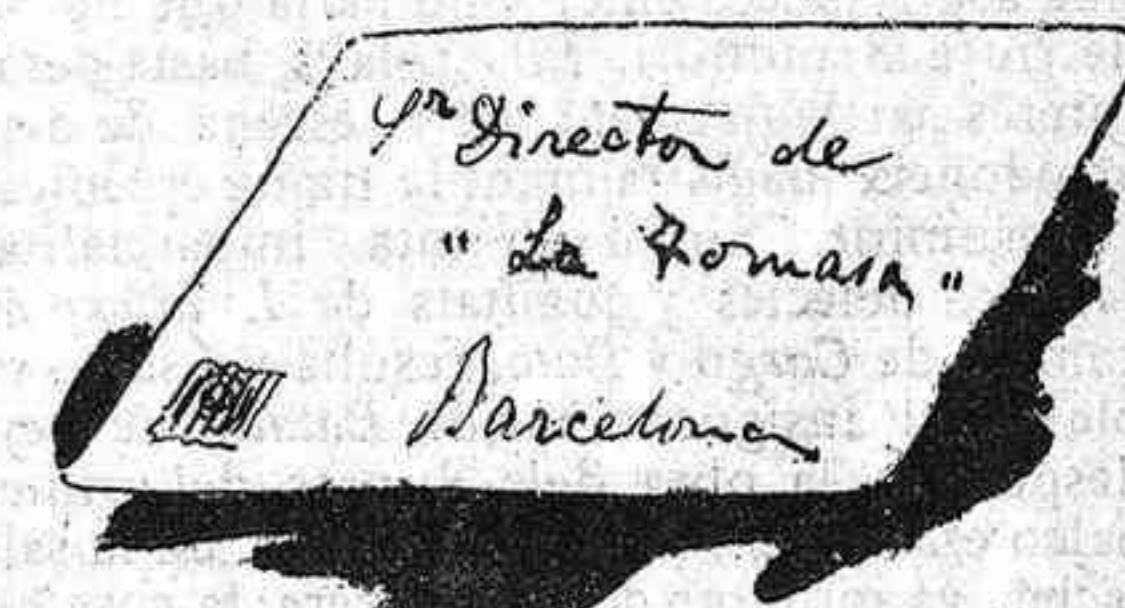 Sr Director de
"La Tomasa"
Barcelona